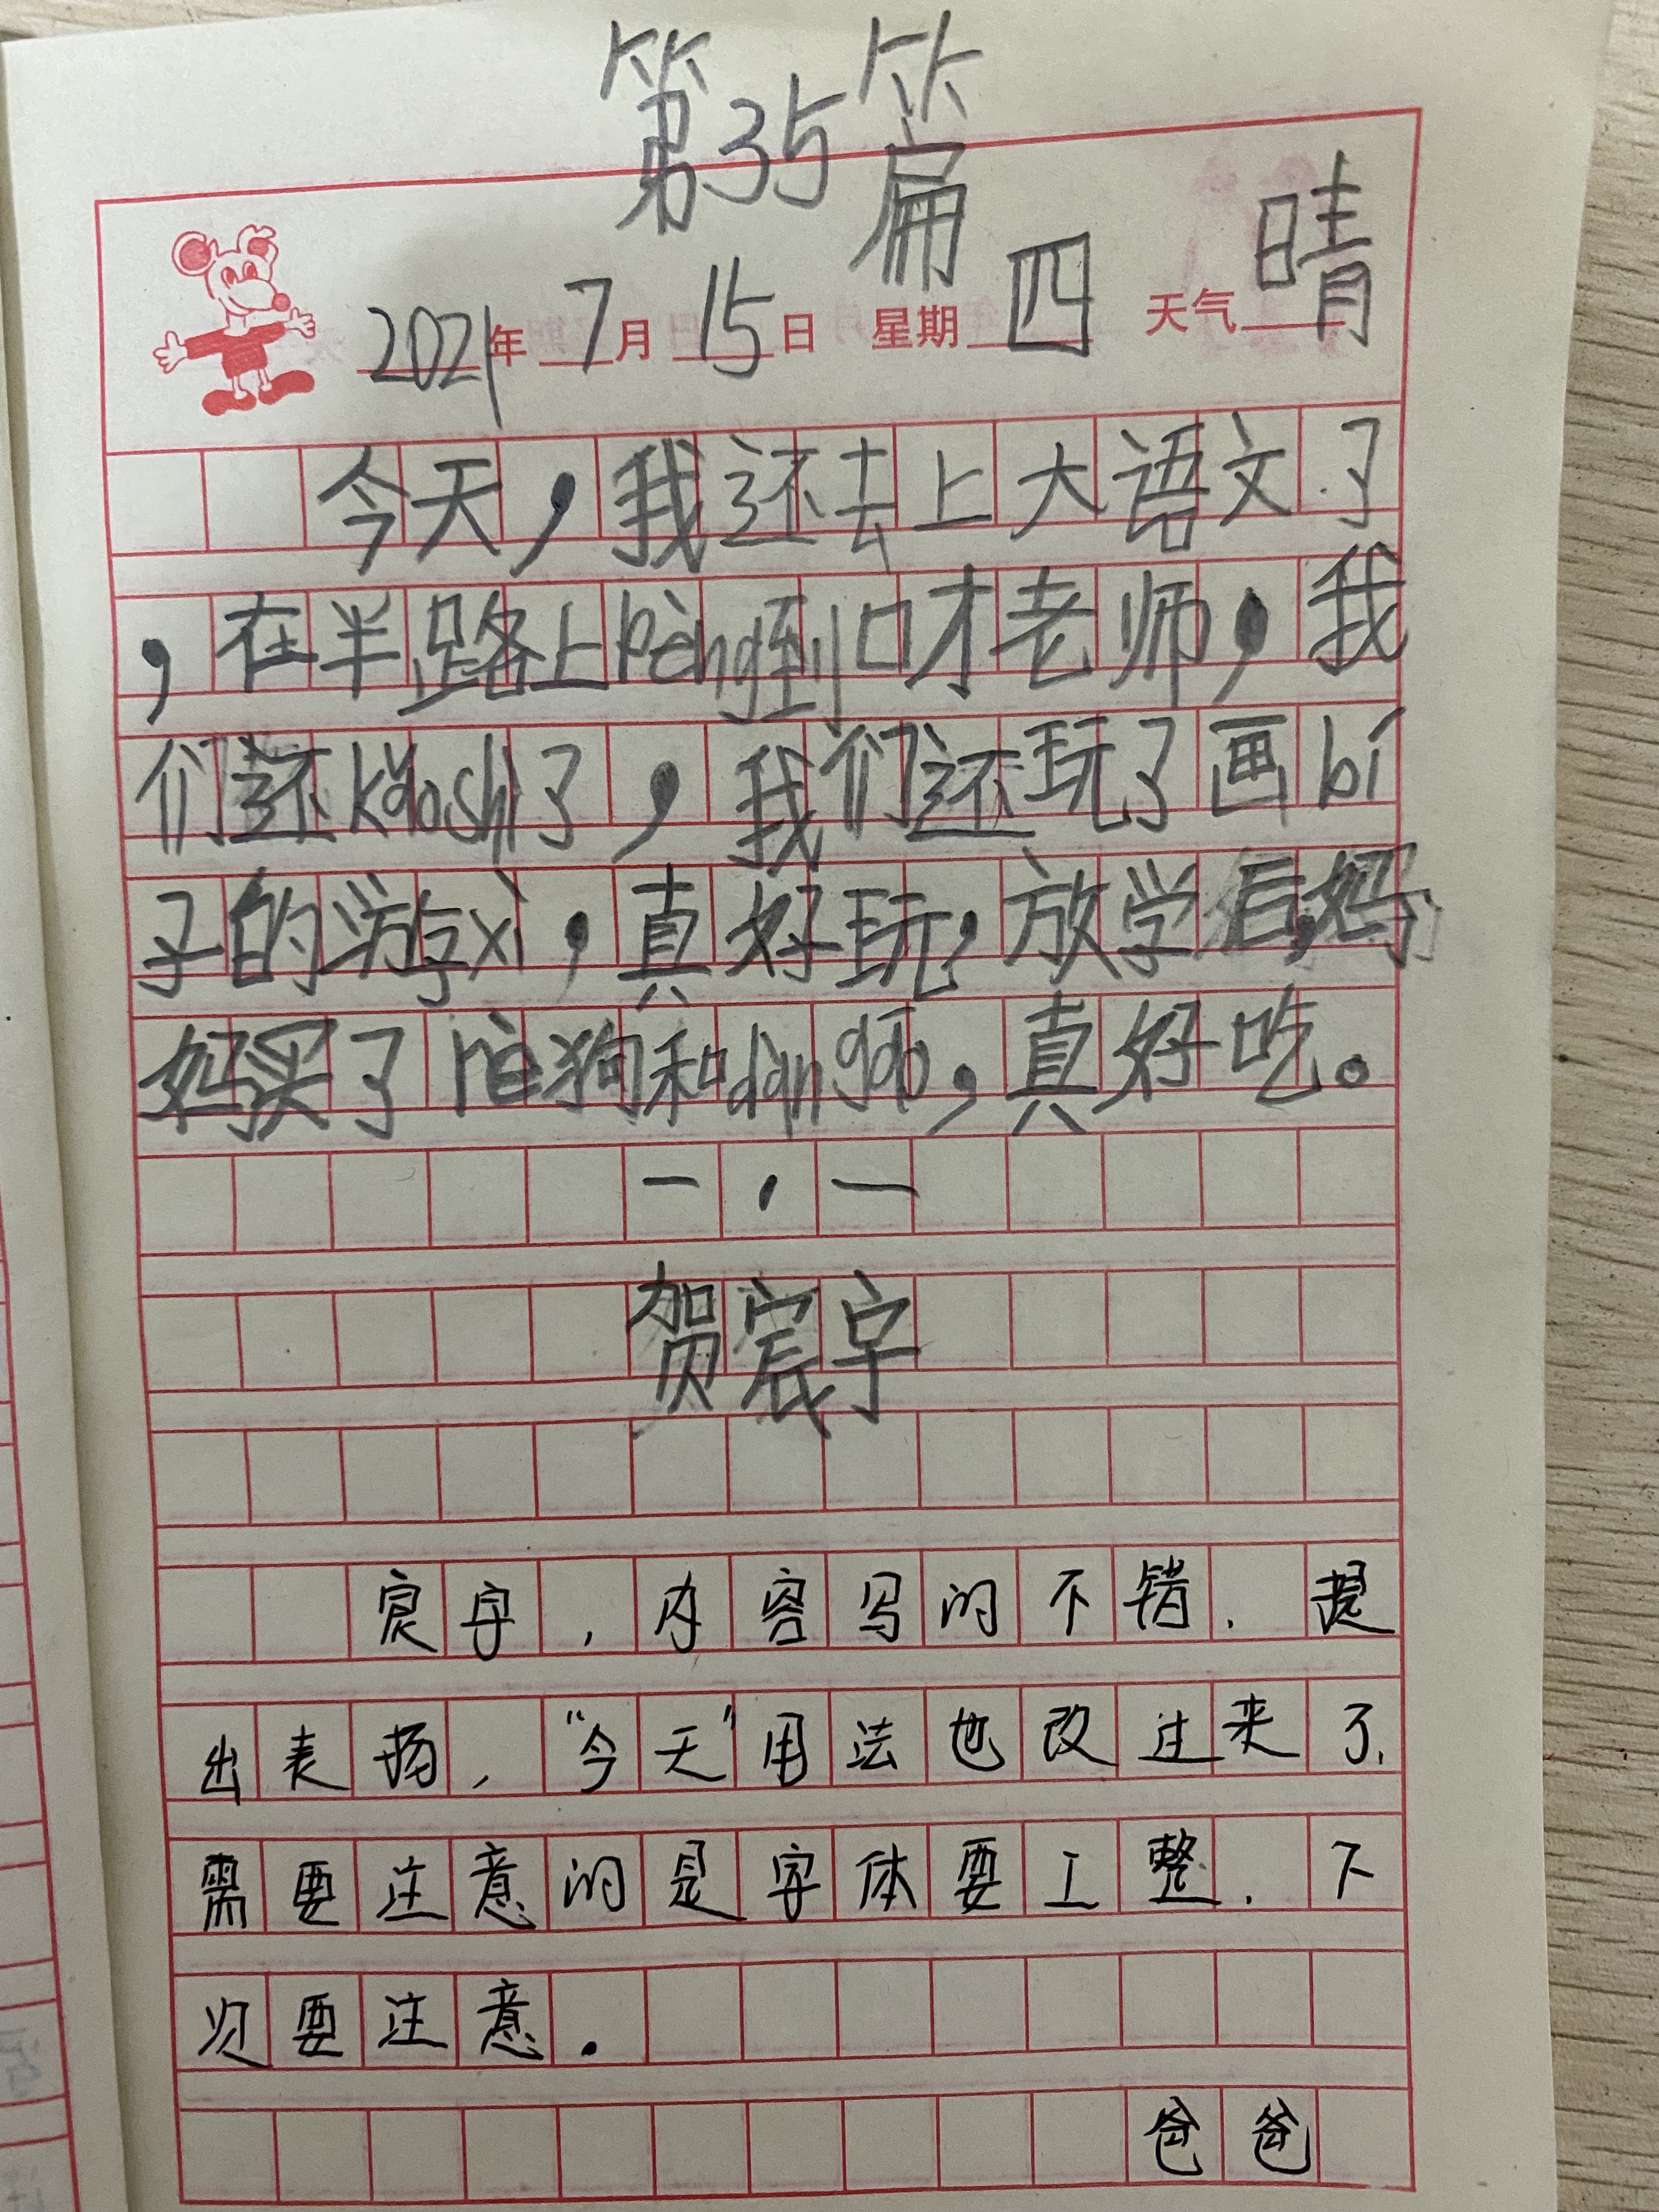 第35篇
2021年7月15日 星期四 天气晴
今天，我还去上大语文了
，在半路上pèng到口才老师，我
们还kǎoshì了，我们还玩了画bí
子的游xì，真好玩，放学后，妈
妈买了rè狗和dàngāo，真好吃。
一·一
贺宸宇
宸宇，内容写的不错．提
出表扬，“今天”用法也改过来了．
需要注意的是字体要工整．下
次要注意．
爸爸